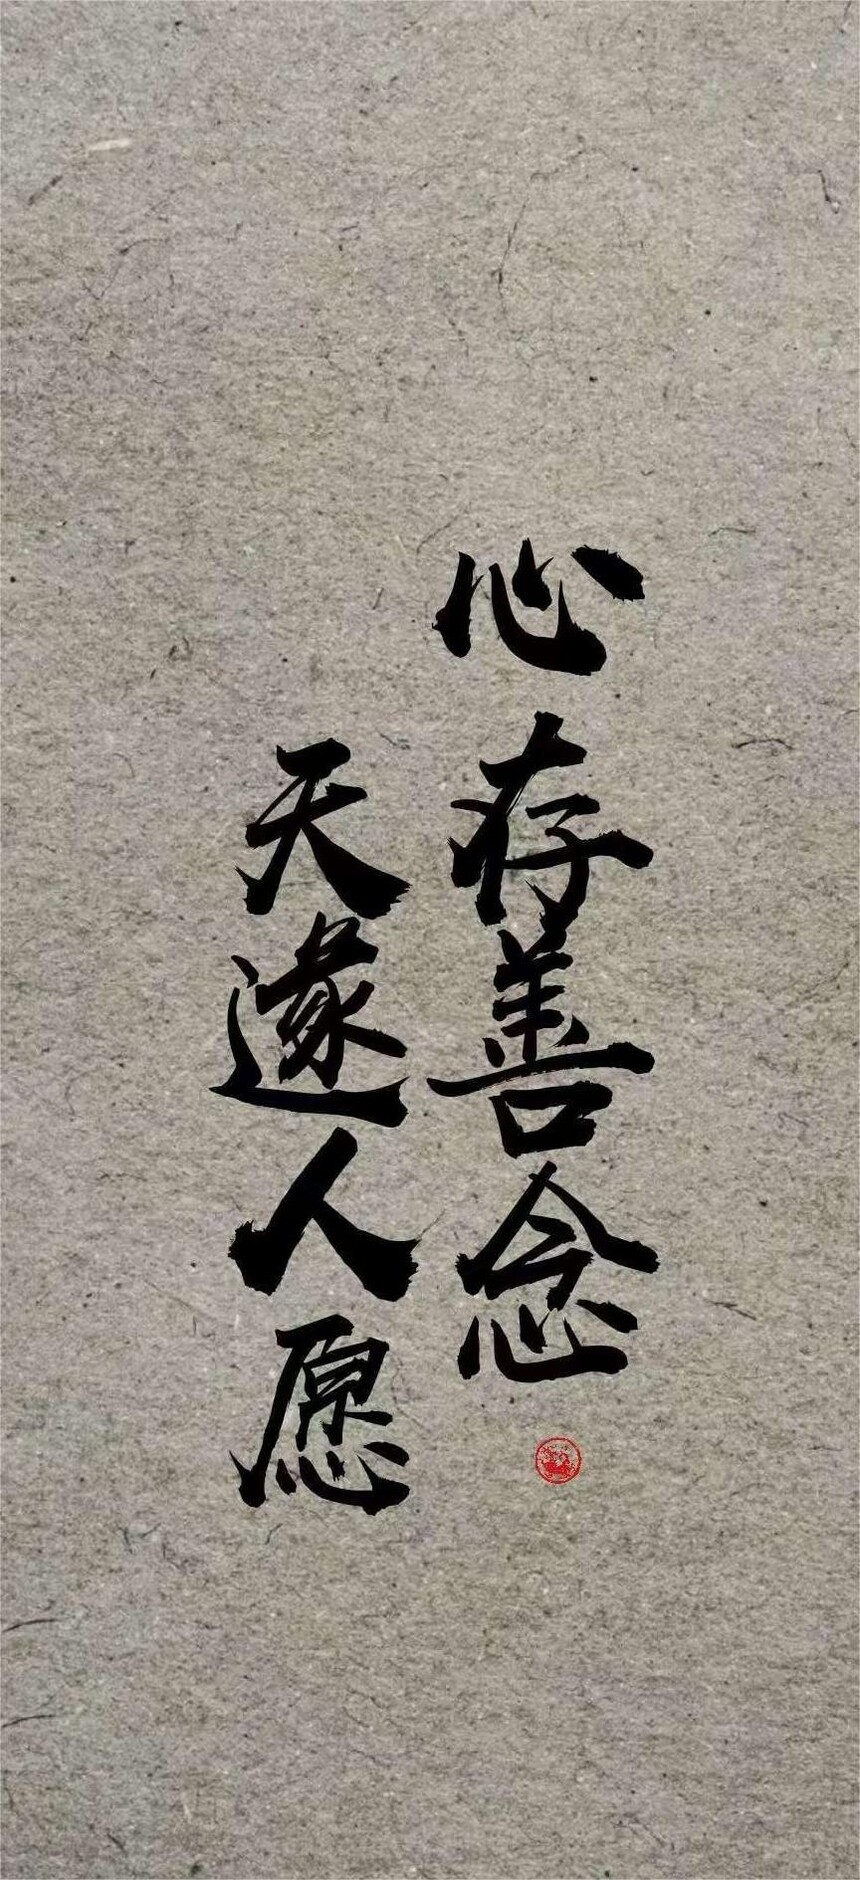 心存善念
天遂人愿